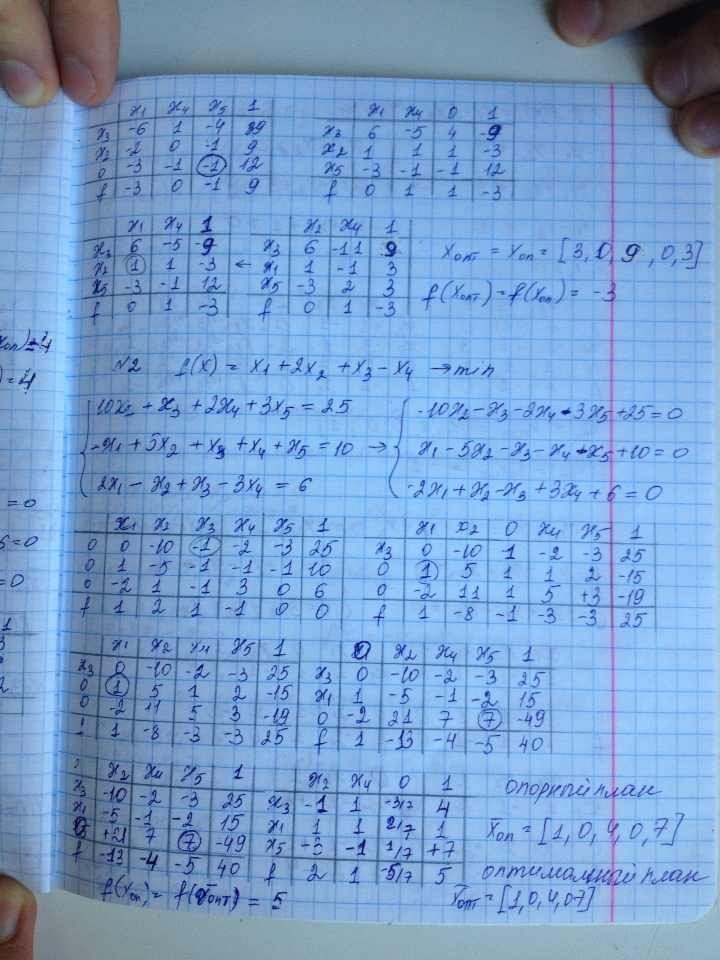 x1 x4 x5 1
x3 -6 1 -4 39
x2 -2 0 -1 9
0 -3 -1 -1 12
f -3 0 -1 9
x1 x4 0 1
x3 6 -5 4 -9
x2 1 1 1 -3
x5 -3 -1 -1 12
f 0 1 1 -3
x1 x4 1
x3 6 -5 -9
x2 1 1 -3 ←
x5 -3 -1 12
f 0 1 -3
x2 x4 1
x3 6 -11 9
x1 1 -1 3
x5 -3 2 3
f 0 1 -3
Xопт = Xоп = [3, 0, 9, 0, 3]
f(Xопт) = f(Xоп) = -3
N2 f(x) = x1 + 2x2 + x3 - x4 → min
10x2 + x3 + 2x4 + 3x5 = 25
-x1 + 5x2 + x3 + x4 + x5 = 10 →
2x1 - x2 + x3 - 3x4 = 6
-10x2 - x3 - 2x4 - 3x5 + 25 = 0
x1 - 5x2 - x3 - x4 - x5 + 10 = 0
-2x1 + x2 - x3 + 3x4 + 6 = 0
x1 x2 x3 x4 x5 1
0 0 -10 -1 -2 -3 25
0 1 -5 -1 -1 -1 10
0 -2 1 -1 3 0 6
f 1 2 1 -1 0 0
x1 x2 0 x4 x5 1
x3 0 -10 -1 -2 -3 25
0 1 5 1 1 2 -15
0 -2 11 1 5 +3 -19
f 1 -8 -1 -3 -3 25
x1 x2 x4 x5 1
x3 0 -10 -2 -3 25
0 1 5 1 2 -15
0 -2 11 5 3 -19
1 -8 -3 -3 25
0 x2 x4 x5 1
x3 0 -10 -2 -3 25
x1 1 -5 -1 -2 15
0 -2 21 7 7 -49
f 1 -13 -4 -5 40
x2 x4 x5 1
x3 -10 -2 -3 25
x1 -5 -1 -2 15
0 +21 7 7 -49
f -13 -4 -5 40
x2 x4 0 1
x3 -1 1 -3/7 4
x1 1 1 2/7 1
x5 -3 -1 1/7 +7
f 2 1 -5/7 5
опорный план
Xоп = [1, 0, 4, 0, 7]
оптимальный план
Xопт = [1, 0, 4, 0 7]
f(Xоп) = f(Xопт) = 5